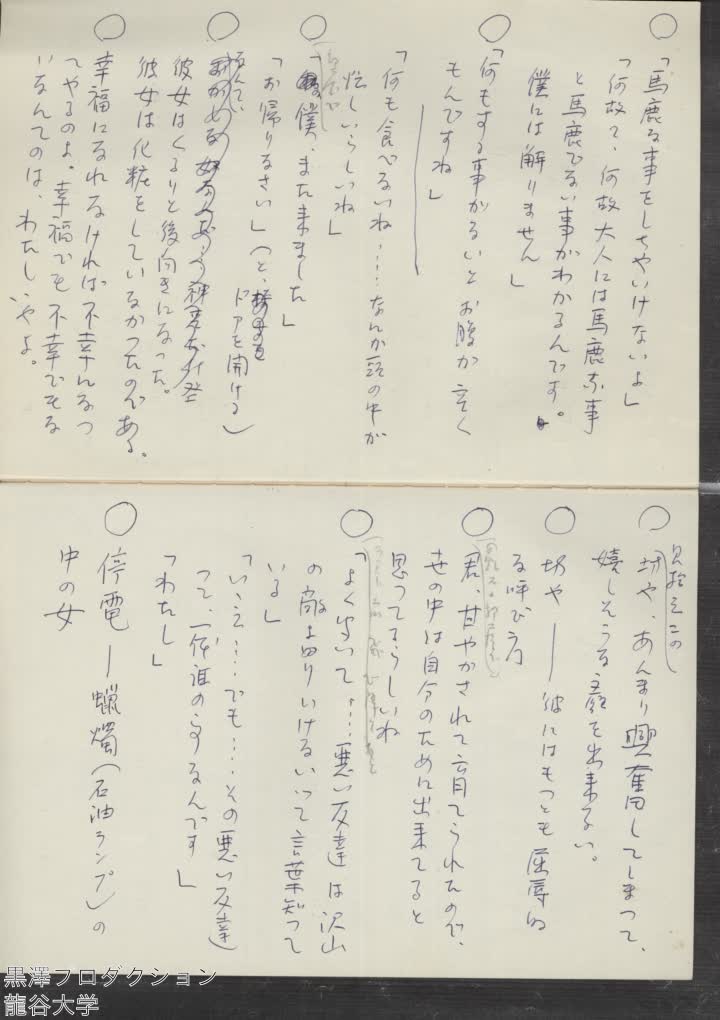 「馬鹿な事をしちやいけないよ」
「何故て、何故大人には馬鹿な事
と馬鹿でない事がわかるんです。
僕には解りません」
「何もする事がないとお腹が空く
もんですね」
「何も食べないね……なんか頭の中が
忙しいらしいね」
「僕、また来ました」
「お帰りなさい」（と、ドアを開ける）
彼女はくるりと後向きになつた。
彼女は化粧をしているなかつたのである。
幸福になれなければ不幸になつ
てやるのよ。幸福でも不幸でもな
いなんてのは、わたしいやよ。
坊や、あんまり興奮してしまつて、
嬉しそうな顔も出来ない。
坊や――彼にはもつとも屈辱的
な呼び方
「君、甘やかされて育てられたので、
世の中は自分のために出来てると
思つてるらしいね
「よく聞いて……悪い友達は沢山
の敵よりいけないつて言葉知つて
いる」
「いゝえ……でも……その悪い友達
つて、一体誰の事なんです」
「わたし」
停電――蠟燭（石油ランプ）の
中の女
黒澤プロダクション
龍谷大学